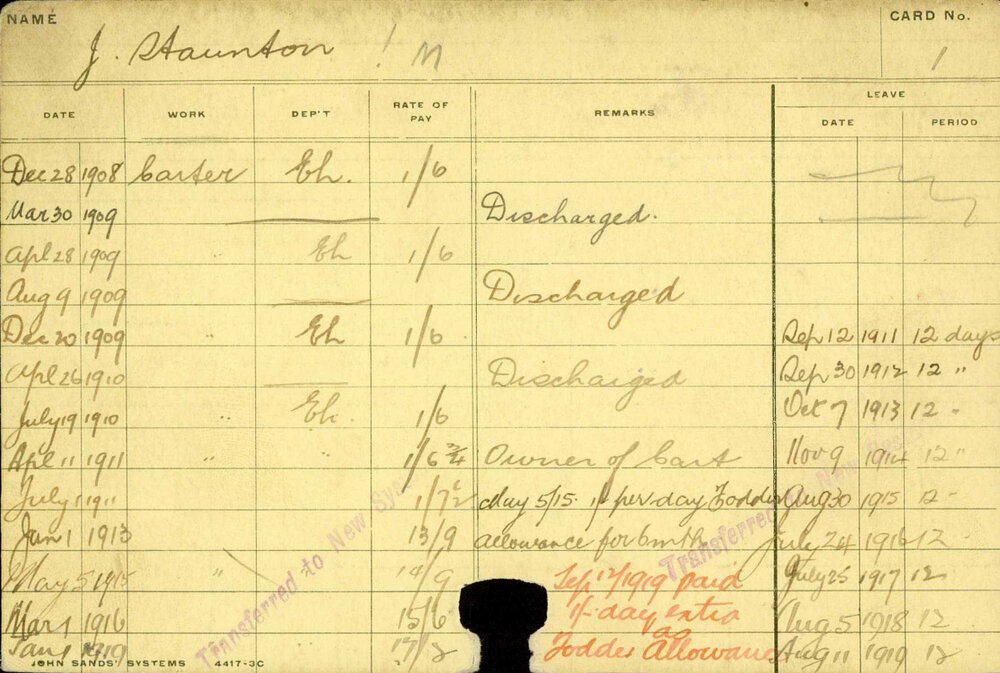 NAME J. Staunton M CARD No. 1
DATE WORK DEP'T RATE OF PAY REMARKS LEAVE
DATE PERIOD
Dec 28 1908 Carter Eh. 1/6
Mar 30 1909 Discharged.
Apl 28 1909 Eh 1/6
Aug 9 1909 Discharged
Dec 20 1909 " Eh 1/6 Sep 12 1911 12 days
Apl 26 1910 Discharged Sep 30 1912 12 "
July 19 1910 " Eh. 1/6 Oct 7 1913 12 "
Apl 11 1911 " " 1/6 3/4 Owner of Cart Nov 9 1914 12 "
July 1 1911 1/7½ May 5/15. 1/- per day Fodder Aug 30 1915 12 "
Jan 1 1913 13/9 allowance for 6 mth July 24 1916 12 "
May 5 1915 " 14/9 Sep 12/1919 paid July 25 1917 12
Mar 1 1916 15/6 1/- day extra Aug 5 1918 12
as
Jan 1 1919 17/2 Fodder Allowance Aug 11 1919 12
Transferred to New Sys
Transferred
JOHN SANDS' SYSTEMS 4417-3C